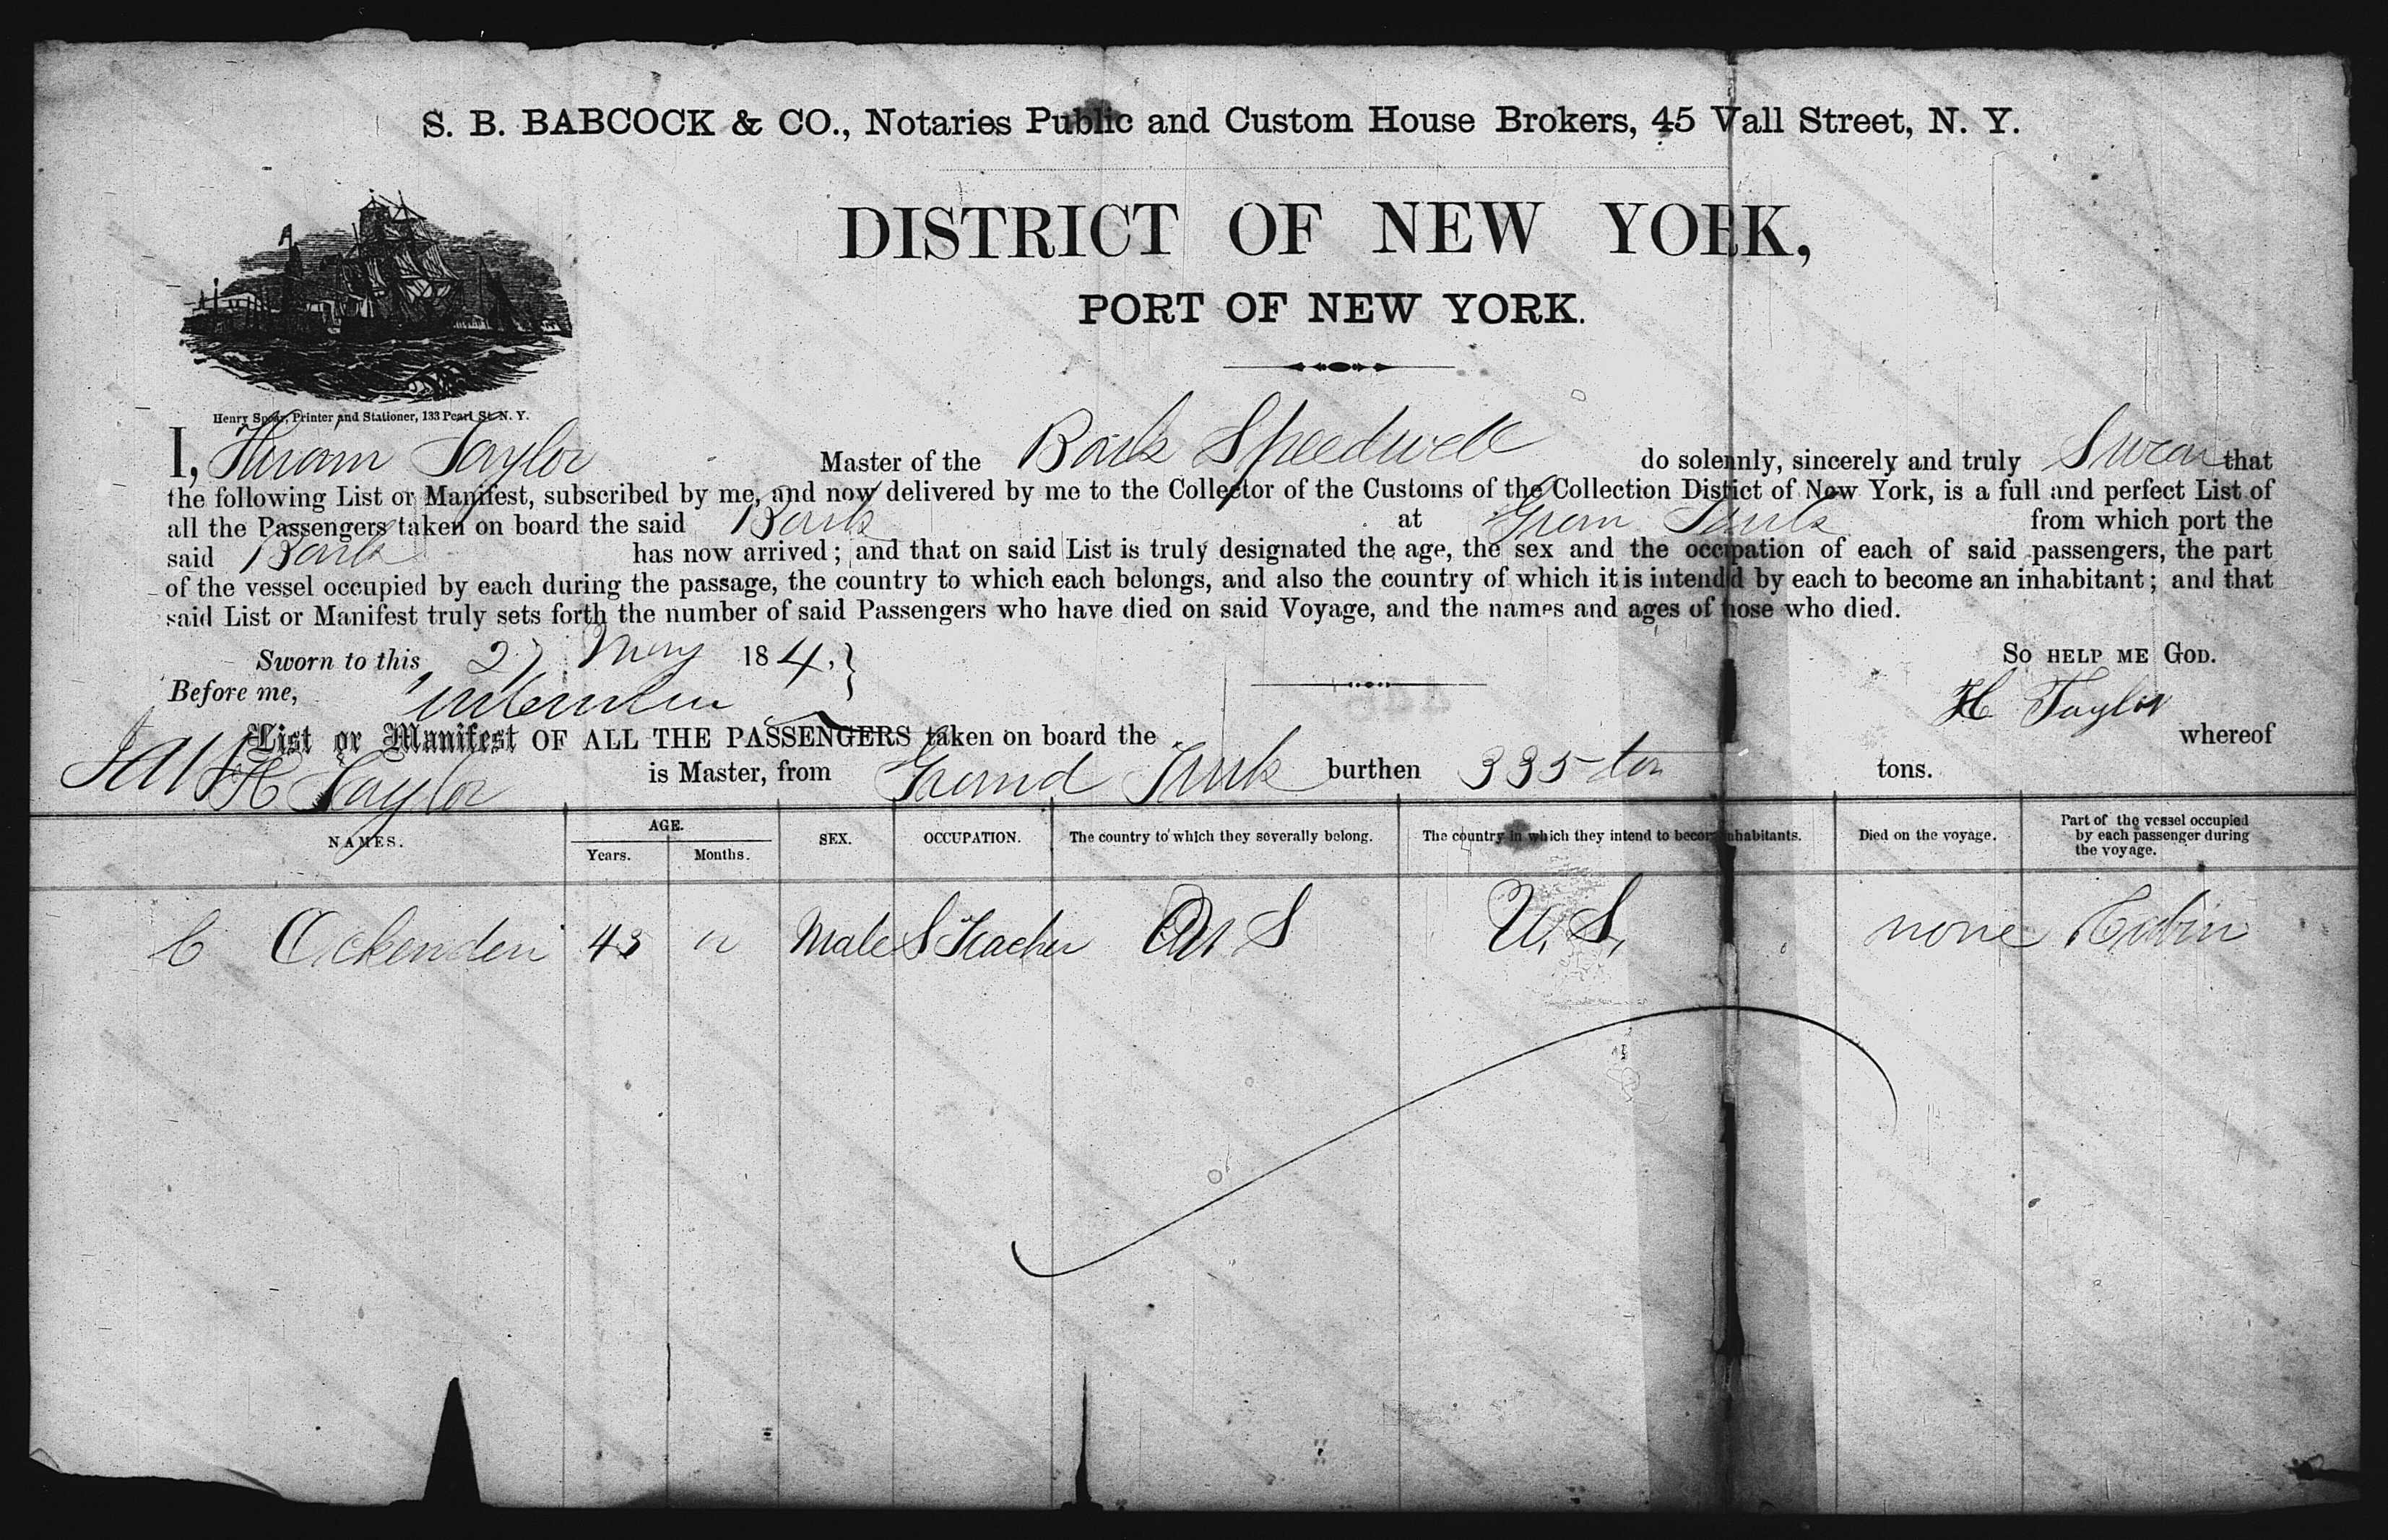 S. B. BABCOCK & CO., Notaries Public and Custom House Brokers, 45 Wall Street, N. Y.
DISTRICT OF NEW YORK,
PORT OF NEW YORK.
Henry Spear, Printer and Stationer, 133 Pearl St. N. Y.
I, Hiram Taylor Master of the Bark Speedwell do solemnly, sincerely and truly Swear that
the following List or Manifest, subscribed by me, and now delivered by me to the Collector of the Customs of the Collection District of New York, is a full and perfect List of
all the Passengers taken on board the said Bark at Gran Turk from which port the
said Bark has now arrived; and that on said List is truly designated the age, the sex and the occupation of each of said passengers, the part
of the vessel occupied by each during the passage, the country to which each belongs, and also the country of which it is intended by each to become an inhabitant; and that
said List or Manifest truly sets forth the number of said Passengers who have died on said Voyage, and the names and ages of those who died.
Sworn to this 27 May 184, So HELP ME GOD.
Before me, H Taylor
List or Manifest OF ALL THE PASSENGERS taken on board the whereof
H Taylor is Master, from Grand Turk burthen 335 ton tons.
NAMES. AGE. Years. Months. SEX. OCCUPATION. The country to which they severally belong. The country in which they intend to become inhabitants. Died on the voyage. Part of the vessel occupied by each passenger during the voyage.
C Ockenden 43 Male S Teacher U S U. S, none Cabin